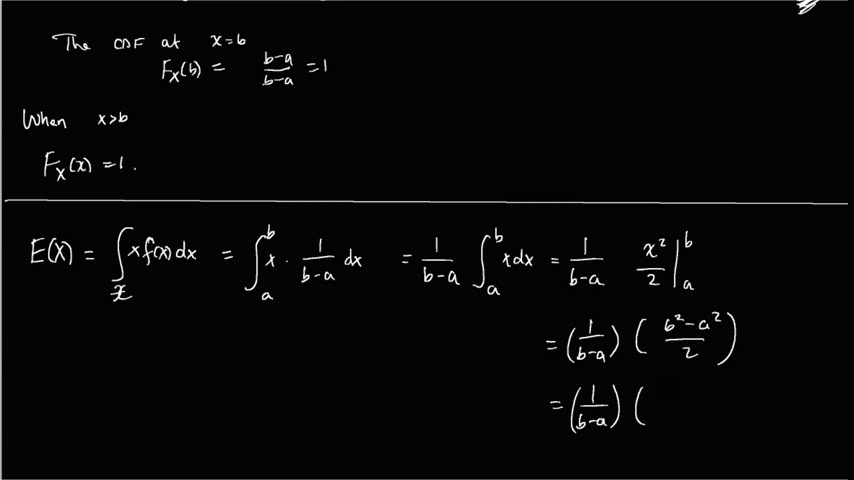 The CDF at x=b
F_X(b) = \frac{b-a}{b-a} = 1
When x>b
F_X(x) = 1.
E(X) = \int_{\mathcal{X}} x f(x) dx = \int_a^b x \cdot \frac{1}{b-a} dx = \frac{1}{b-a} \int_a^b x dx = \frac{1}{b-a} \frac{x^2}{2} |_a^b
= (\frac{1}{b-a}) ( \frac{b^2-a^2}{2} )
= (\frac{1}{b-a}) (